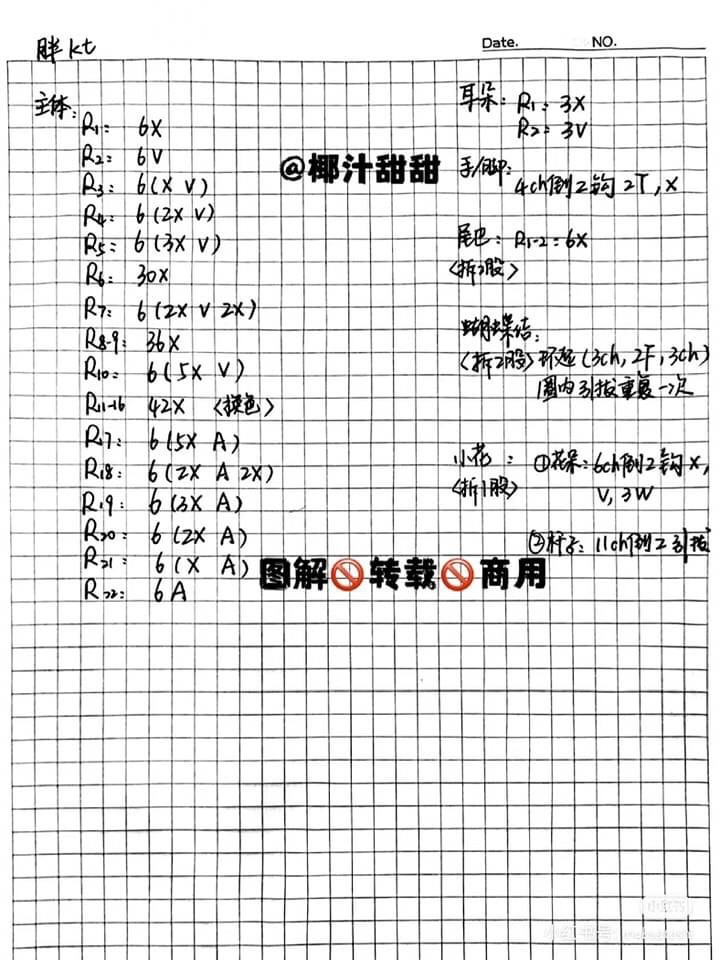 胖kt
Date. NO.
主体:
R1: 6X
R2: 6V
R3: 6(X V)
R4: 6(2X V)
R5: 6(3X V)
R6: 30X
R7: 6(2X V 2X)
R8-9: 36X
R10: 6(5X V)
R11-16 42X <换色>
R17: 6(5X A)
R18: 6(2X A 2X)
R19: 6(3X A)
R20: 6(2X A)
R21: 6(X A)
R22: 6A
耳朵: R1: 3X
R2: 3V
@椰汁甜甜
手/脚:
4ch倒2钩2T,X
尾巴: R1-2:6X
<拆2股>
蝴蝶结:
<拆2股>环起(3ch,2F,3ch)
圈内引拔重复一次
小花: ①花朵:6ch倒2钩X,
<拆1股> V,3W
②杆子: 11ch倒2引拔
图解🚫转载🚫商用
小红书
小红书号: